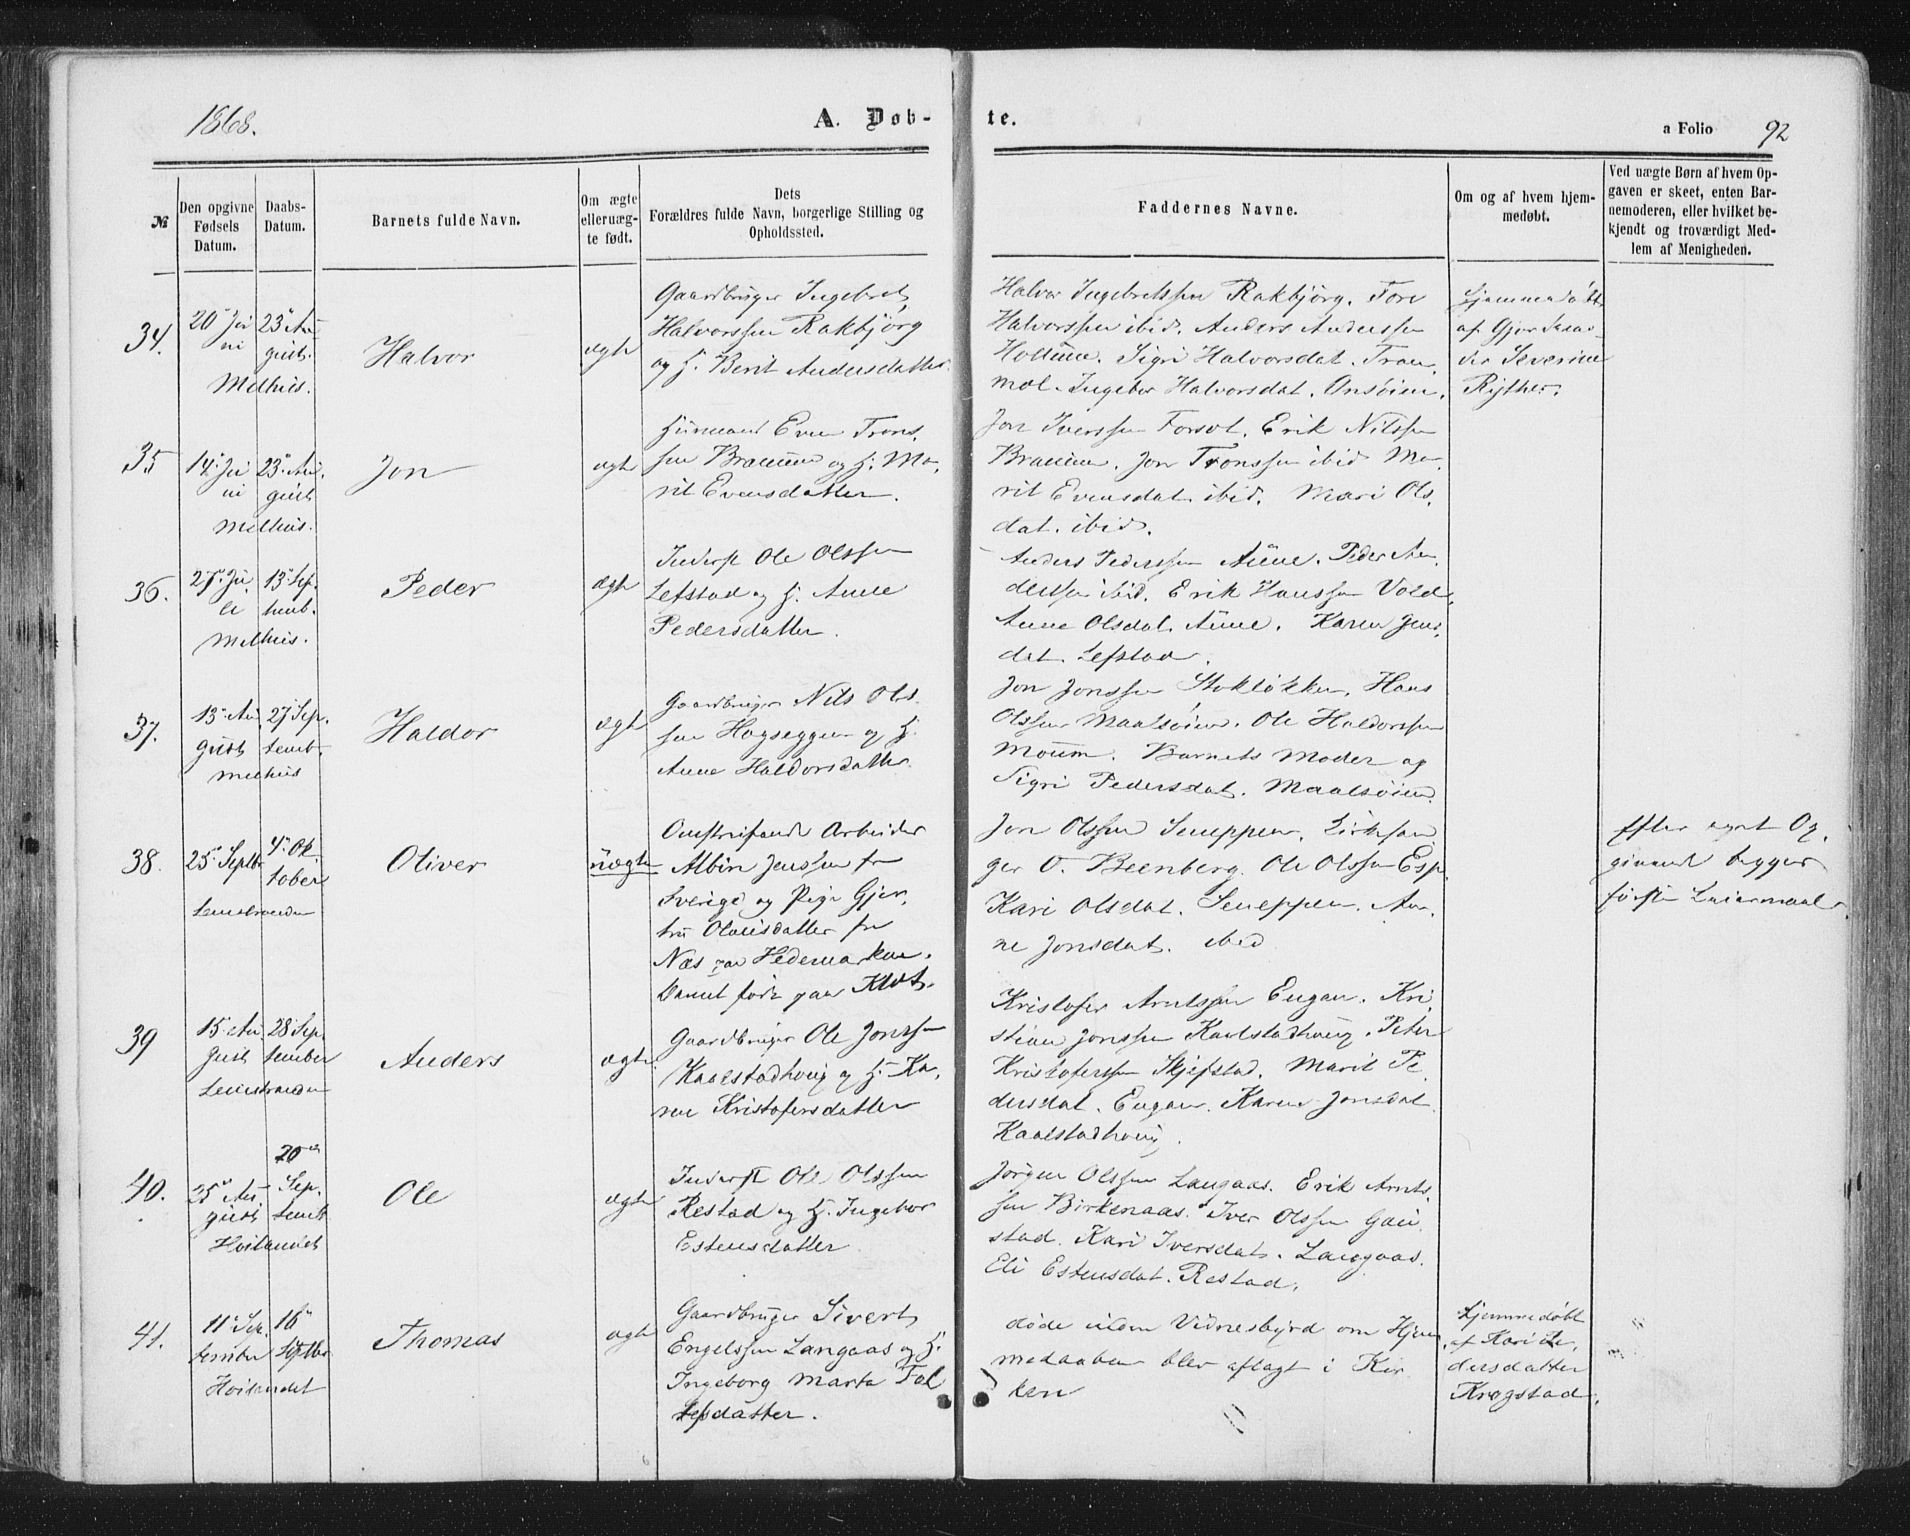 1868.
A. Døb-
te.
a Folio 92
№
Den opgivne
Fødsels
Datum.
Daabs-
Datum.
Barnets fulde Navn.
Om ægte
eller uæg-
te født.
Dets
Forældres fulde Navn, borgerlige Stilling og
Opholdssted.
Faddernes Navne.
Om og af hvem hjem-
medøbt.
Ved uægte Børn af hvem Op-
gaven er skeet, enten Bar-
nemoderen, eller hvilket be-
kjendt og troværdigt Med-
lem af Menigheden.
34.
20de Ju
ni
23de Au
gust.
Melhus.
Halvor
ægte
Gaardbruger Ingebret
Halvorssen Rakbjörg
og H. Berit Andersdatter.
Halvor Ingebretssen Rakbjörg. Tore
Halvorssen ibid. Anders Anderssen
Holtum. Sigri Halvorsdat. Tran
mæl. Ingebor Halvorsdat. Onsöien.
Hjemmedøbt
af Gjor
Severine
Rijther.
35
14de Ju
ni
23de Au,
gust
Melhus.
Jon
ægte
Huusmand Even Trons,
sen Braun og H. Ma,
rit Evensdatter.
Jon Iverssen Forsöt. Erik Nilssen
Braun. Jon Tronssen ibid Ma,
rit Evensdat. ibid. Mari Ols,
dat. ibid.
36.
27de Ju,
li
13de Sep,
temb.
Melhus.
Peder
ægte
Inderst Ole Olssen
Lefstad og H. Anne
Pedersdatter.
Anders Pederssen Aune. Peder An,
derssen ibid. Erik Hanssen Vold,
Anne Olsdat. Aune. Karen Jens,
dat. Lefstad.
37.
13de Au,
gust
27de Sep.
temb.
Melhus
Haldor
ægte
Gaardbruger Nils Ols,
sen Hagseggen og H.
Anne Haldorsdatter.
Jon Jonssen Stoklökken. Hans
Olssen Maalsöien. Ole Haldorssen
Moum. Barnets Moder og
Sigri Pedersdat. Maalsöien.
38.
25de Septbr
4de Ok
tober
Leinstranden
Oliver
uægte
Omstreifende Arbeider
Albin Jenssen fra
Sverige og Pige Gjer,
tru Olausdatter fra
Næs paa Hedemarken.
Barnet født paa Klæt.
Jon Olssen Sneppen. Kirkesan
ger O. Beenberg. Ole Olssen Esp.
Kari Olsdat. Sneppen. An,
ne Jonsdat. ibid
Efter eget Op,
givende begges
første Leiermaal.
39
15de Au,
gust
28de Sep.
tember
Leinstranden
Anders
ægte
Gaardbruger Ole Jonssen
Kaalstadhoug og H. Ka,
ren Kristofersdatter
Kristofer Arntssen Engan. Kri
stian Jonssen Kaalstadhoug. Peter
Kristoferssen Skjefstad. Marit Pe
dersdat. Engan. Karen Jonsdat.
Kaalstadhoug.
40.
25de Au,
gust
20de
Sep.
temb
Höilandet
Ole
ægte
Inderst Ole Olssen
Restad og H. Ingebor
Estensdatter
Jörgen Olssen Langaas. Erik Arnts,
sen Birkenaas. Iver Olssen Gau
stad. Kari Iversdat. Langaas.
Eli Estensdat. Restad.
41.
11de Sep.
tember
16de
Septbr
Höilandet
Thomas
ægte
Gaardbruger Sivert
Engelssen Langaas og H.
Ingeborg Marta Tol
lefsdatter.
døde uden Vidnesbyrd om Hjem,
medaaben blev aflagt i Kir
ken
Hjemmedøbt
af Kari Pe,
dersdatter
Kragstad.